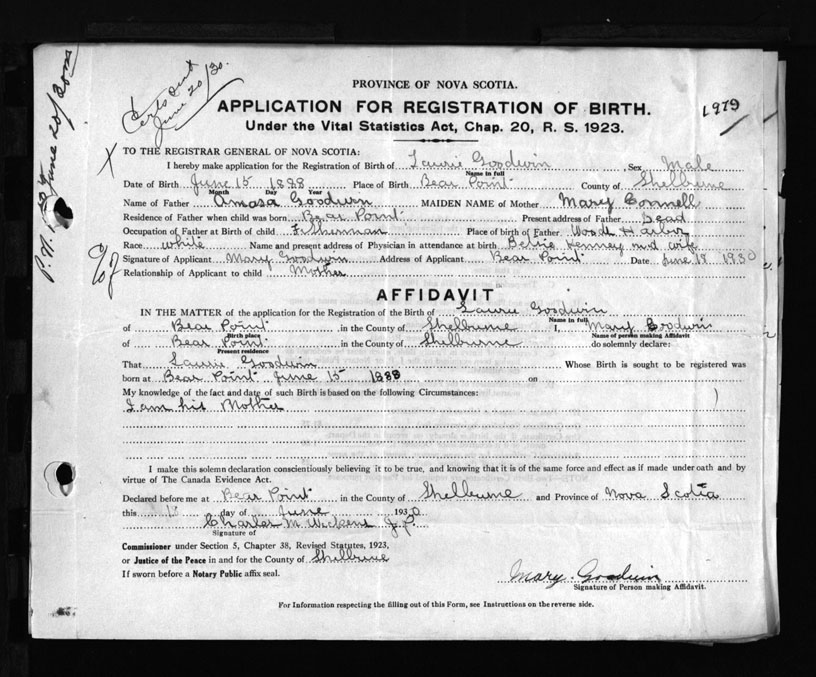 Cert sent
June 20/30.
PROVINCE OF NOVA SCOTIA.
APPLICATION FOR REGISTRATION OF BIRTH.
Under the Vital Statistics Act, Chap. 20, R. S. 1923.
1979
June 20/30
TO THE REGISTRAR GENERAL OF NOVA SCOTIA:
I hereby make application for the Registration of Birth of Laurie Goodwin Sex Male
Name in full
Date of Birth June 15 1888 Place of Birth Bear Point County of Shelburne
Month Day Year
Name of Father Amasa Goodwin MAIDEN NAME of Mother Mary Connell
Residence of Father when child was born Bear Point Present address of Father Dead
Occupation of Father at Birth of child Fisherman Place of birth of Father Woods Harbor
Race white Name and present address of Physician in attendance at birth Bettie Kenney mid wife
Signature of Applicant Mary Goodwin Address of Applicant Bear Point Date June 18 1930
Relationship of Applicant to child Mother
AFFIDAVIT
IN THE MATTER of the application for the Registration of the Birth of Laurie Goodwin
Name in full
of Bear Point in the County of Shelburne I, Mary Goodwin
Birth place Name of person making Affidavit
of Bear Point in the County of Shelburne do solemnly declare:
Present residence
That Laurie Goodwin Whose Birth is sought to be registered was
born at Bear Point June 15 1888 on
My knowledge of the fact and date of such Birth is based on the following Circumstances:
I am his Mother
I make this solemn declaration conscientiously believing it to be true, and knowing that it is of the same force and effect as if made under oath and by
virtue of The Canada Evidence Act.
Declared before me at Bear Point in the County of Shelburne and Province of Nova Scotia
this day of June 1930
Charles M. Wickens J.P.
Signature of
Commissioner under Section 5, Chapter 38, Revised Statutes, 1923,
or Justice of the Peace in and for the County of Shelburne
If sworn before a Notary Public affix seal.
Mary Goodwin
Signature of Person making Affidavit.
For Information respecting the filling out of this Form, see Instructions on the reverse side.